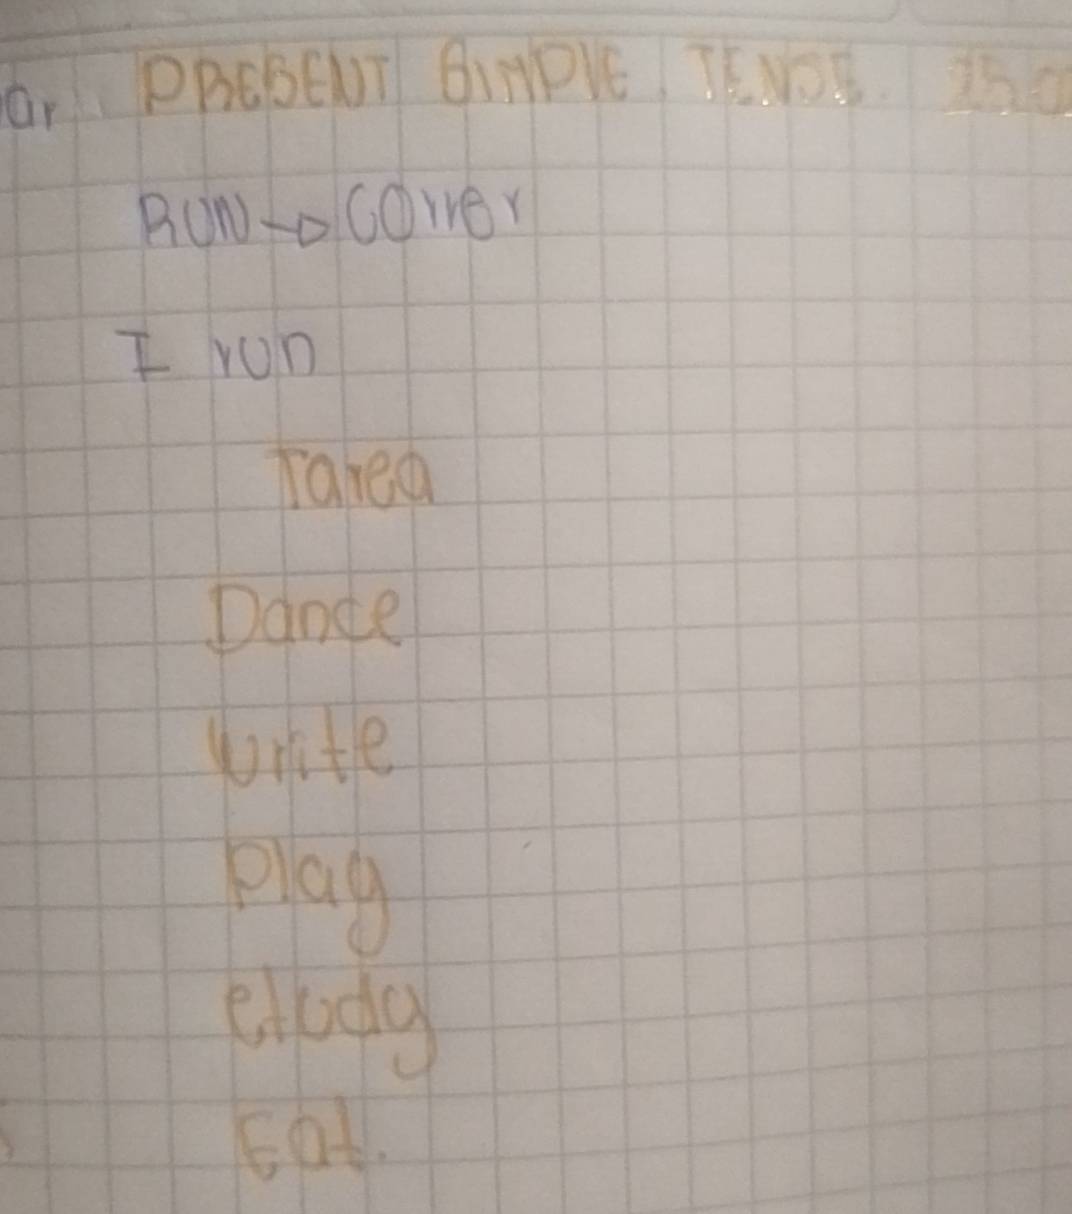 ar PRESENT SIMPLE TENSE.
RUN → Correr
I run
Tarea
Dance
Write
Play
etudy
Eat.